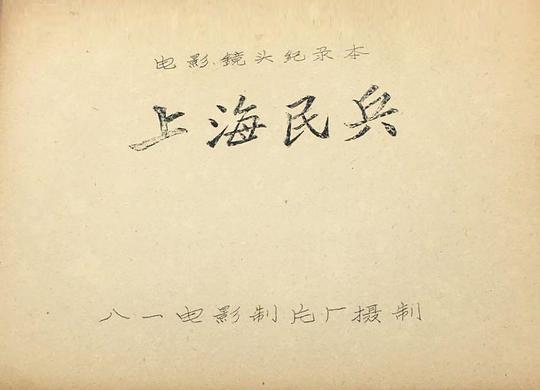 电影鏡头纪录本
上海民兵
八一电影制片厂摄制